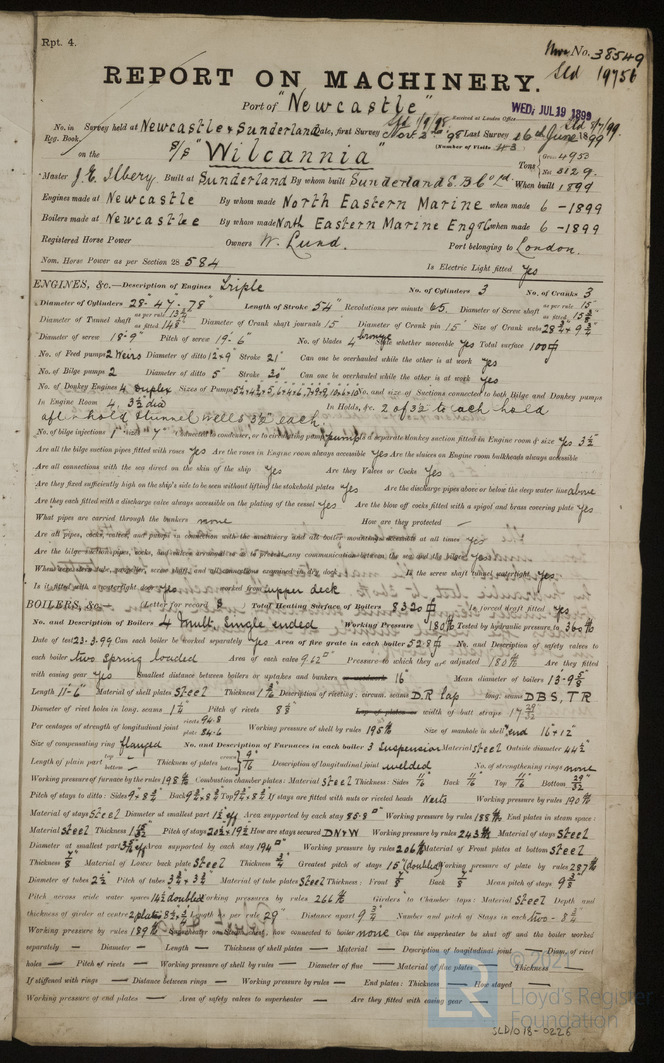 Rpt. 4.
No. 38549
Sld 19756
REPORT ON MACHINERY.
Port of "Newcastle"
WED. JUL 19 1899
Received at London Office
No. in Survey held at Newcastle & Sunderland Date, first Survey Nov 2nd 98 Last Survey 16th June 1899
Reg. Book
(Number of Visits 43)
on the S/S "Wilcannia" Tons
Gross 4953
Net 3129.
Master J. E. Ilbery. Built at Sunderland By whom built Sunderland S.B. Co Ld. When built 1899
Engines made at Newcastle By whom made North Eastern Marine when made 6 - 1899
Boilers made at Newcastle By whom made North Eastern Marine Eng. Co when made 6 - 1899
Registered Horse Power Owners W. Lund. Port belonging to London.
Nom. Horse Power as per Section 28 584 Is Electric Light fitted yes
ENGINES, &c.—Description of Engines Triple No. of Cylinders 3 No. of Cranks 3
Diameter of Cylinders 28"- 47 - 78" Length of Stroke 54" Revolutions per minute 65. Diameter of Screw shaft as per rule 15 as fitted
Diameter of Tunnel shaft as per rule as fitted Diameter of Crank shaft journals 15" Diameter of Crank pin 15" Size of Crank webs
Diameter of screw 18-9" Pitch of screw 19-6" No. of blades 4 bronze State whether moveable yes Total surface 100
No. of Feed pumps 2 Weirs Diameter of ditto 12 & 9" Stroke 21" Can one be overhauled while the other is at work yes
No. of Bilge pumps 2 Diameter of ditto 5" Stroke 30" Can one be overhauled while the other is at work yes
No. of Donkey Engines 4 duplex Sizes of Pumps No. and size of Suctions connected to both Bilge and Donkey pumps
In Engine Room 4, 3½ dia In Holds, &c. 2 of 3½ to each hold
after hold & tunnel wells 3½ each.
No. of bilge injections 1 sizes 7" Connected to condenser, or to circulating pump pump Is a separate donkey suction fitted in Engine room & size yes 3½
Are all the bilge suction pipes fitted with roses yes Are the roses in Engine room always accessible yes Are the sluices on Engine room bulkheads always accessible
Are all connections with the sea direct on the skin of the ship yes Are they Valves or Cocks yes
Are they fixed sufficiently high on the ship's side to be seen without lifting the stokehold plates yes Are the discharge pipes above or below the deep water line above
Are they each fitted with a discharge valve always accessible on the plating of the vessel yes Are the blow off cocks fitted with a spigot and brass covering plate yes
What pipes are carried through the bunkers none How are they protected —
Are all pipes, cocks, valves, and pumps in connection with the machinery and all boiler mountings accessible at all times yes
Are the bilge suction pipes, cocks, and valves arranged so as to prevent any communication between the sea and the bilges yes
When were stern tube, propeller, screw shaft, and all connections examined in dry dock Is the screw shaft tunnel watertight yes
Is it fitted with a watertight door yes worked from upper deck
BOILERS, &c.— (Letter for record S) Total Heating Surface of Boilers 8320 Is forced draft fitted yes
No. and Description of Boilers 4 Mult. Single ended Working Pressure 180 lb Tested by hydraulic pressure to 360 lb
Date of test 23.3.99 Can each boiler be worked separately yes Area of fire grate in each boiler 52.8 No. and Description of safety valves to
each boiler two Spring loaded Area of each valve 9.62 Pressure to which they are adjusted 180 lb Are they fitted
with easing gear yes Smallest distance between boilers or uptakes and bunkers 16" Mean diameter of boilers
Length 11-6" Material of shell plates Steel Thickness Description of riveting: circum. seams D.R. lap long. seams DBS, TR
Diameter of rivet holes in long. seams 1¼ Pitch of rivets 8⅝ Lap of plates or width of butt straps
Per centages of strength of longitudinal joint rivets 94.8 plate Working pressure of shell by rules 195 lb Size of manhole in shell end 16 x 12"
Size of compensating ring flanged No. and Description of Furnaces in each boiler 3 Suspension Material Steel Outside diameter 44½
Length of plain part top bottom Thickness of plates crown bottom 9/16 Description of longitudinal joint welded No. of strengthening rings none
Working pressure of furnace by the rules 198 lb Combustion chamber plates: Material Steel Thickness: Sides 11/16 Back 11/16 Top 11/16 Bottom 29/32
Pitch of stays to ditto: Sides 9 x 8¾ Back Top If stays are fitted with nuts or riveted heads Nuts Working pressure by rules 190 lb
Material of stays Steel Diameter at smallest part Area supported by each stay 85.8 Working pressure by rules 188 lb End plates in steam space:
Material Steel Thickness Pitch of stays 20½ x 19½ How are stays secured DN&W Working pressure by rules 243 lb Material of stays Steel
Diameter at smallest part Area supported by each stay 194 Working pressure by rules 206 lb Material of Front plates at bottom Steel
Thickness ⅞ Material of Lower back plate Steel Thickness Greatest pitch of stays 15" (doubled) Working pressure of plate by rules 287 lb
Diameter of tubes 2½ Pitch of tubes 3¾ x 3¾ Material of tube plates Steel Thickness: Front ⅞ Back ⅞ Mean pitch of stays
Pitch across wide water spaces 14½ doubled Working pressures by rules 266 lb Girders to Chamber tops: Material Steel Depth and
thickness of girder at centre 2 plates Length as per rule 29" Distance apart 9¾ Number and pitch of Stays in each two - 8¾
Working pressure by rules 189 lb Superheater or Steam chest; how connected to boiler none Can the superheater be shut off and the boiler worked
separately — Diameter — Length — Thickness of shell plates — Material — Description of longitudinal joint — Diam. of rivet
holes — Pitch of rivets — Working pressure of shell by rules — Diameter of flue — Material of flue plates — Thickness —
If stiffened with rings — Distance between rings — Working pressure by rules — End plates: Thickness — How stayed —
Working pressure of end plates — Area of safety valves to superheater — Are they fitted with easing gear —
© 2021
LR Lloyd's Register
Foundation
SLD1018-0226